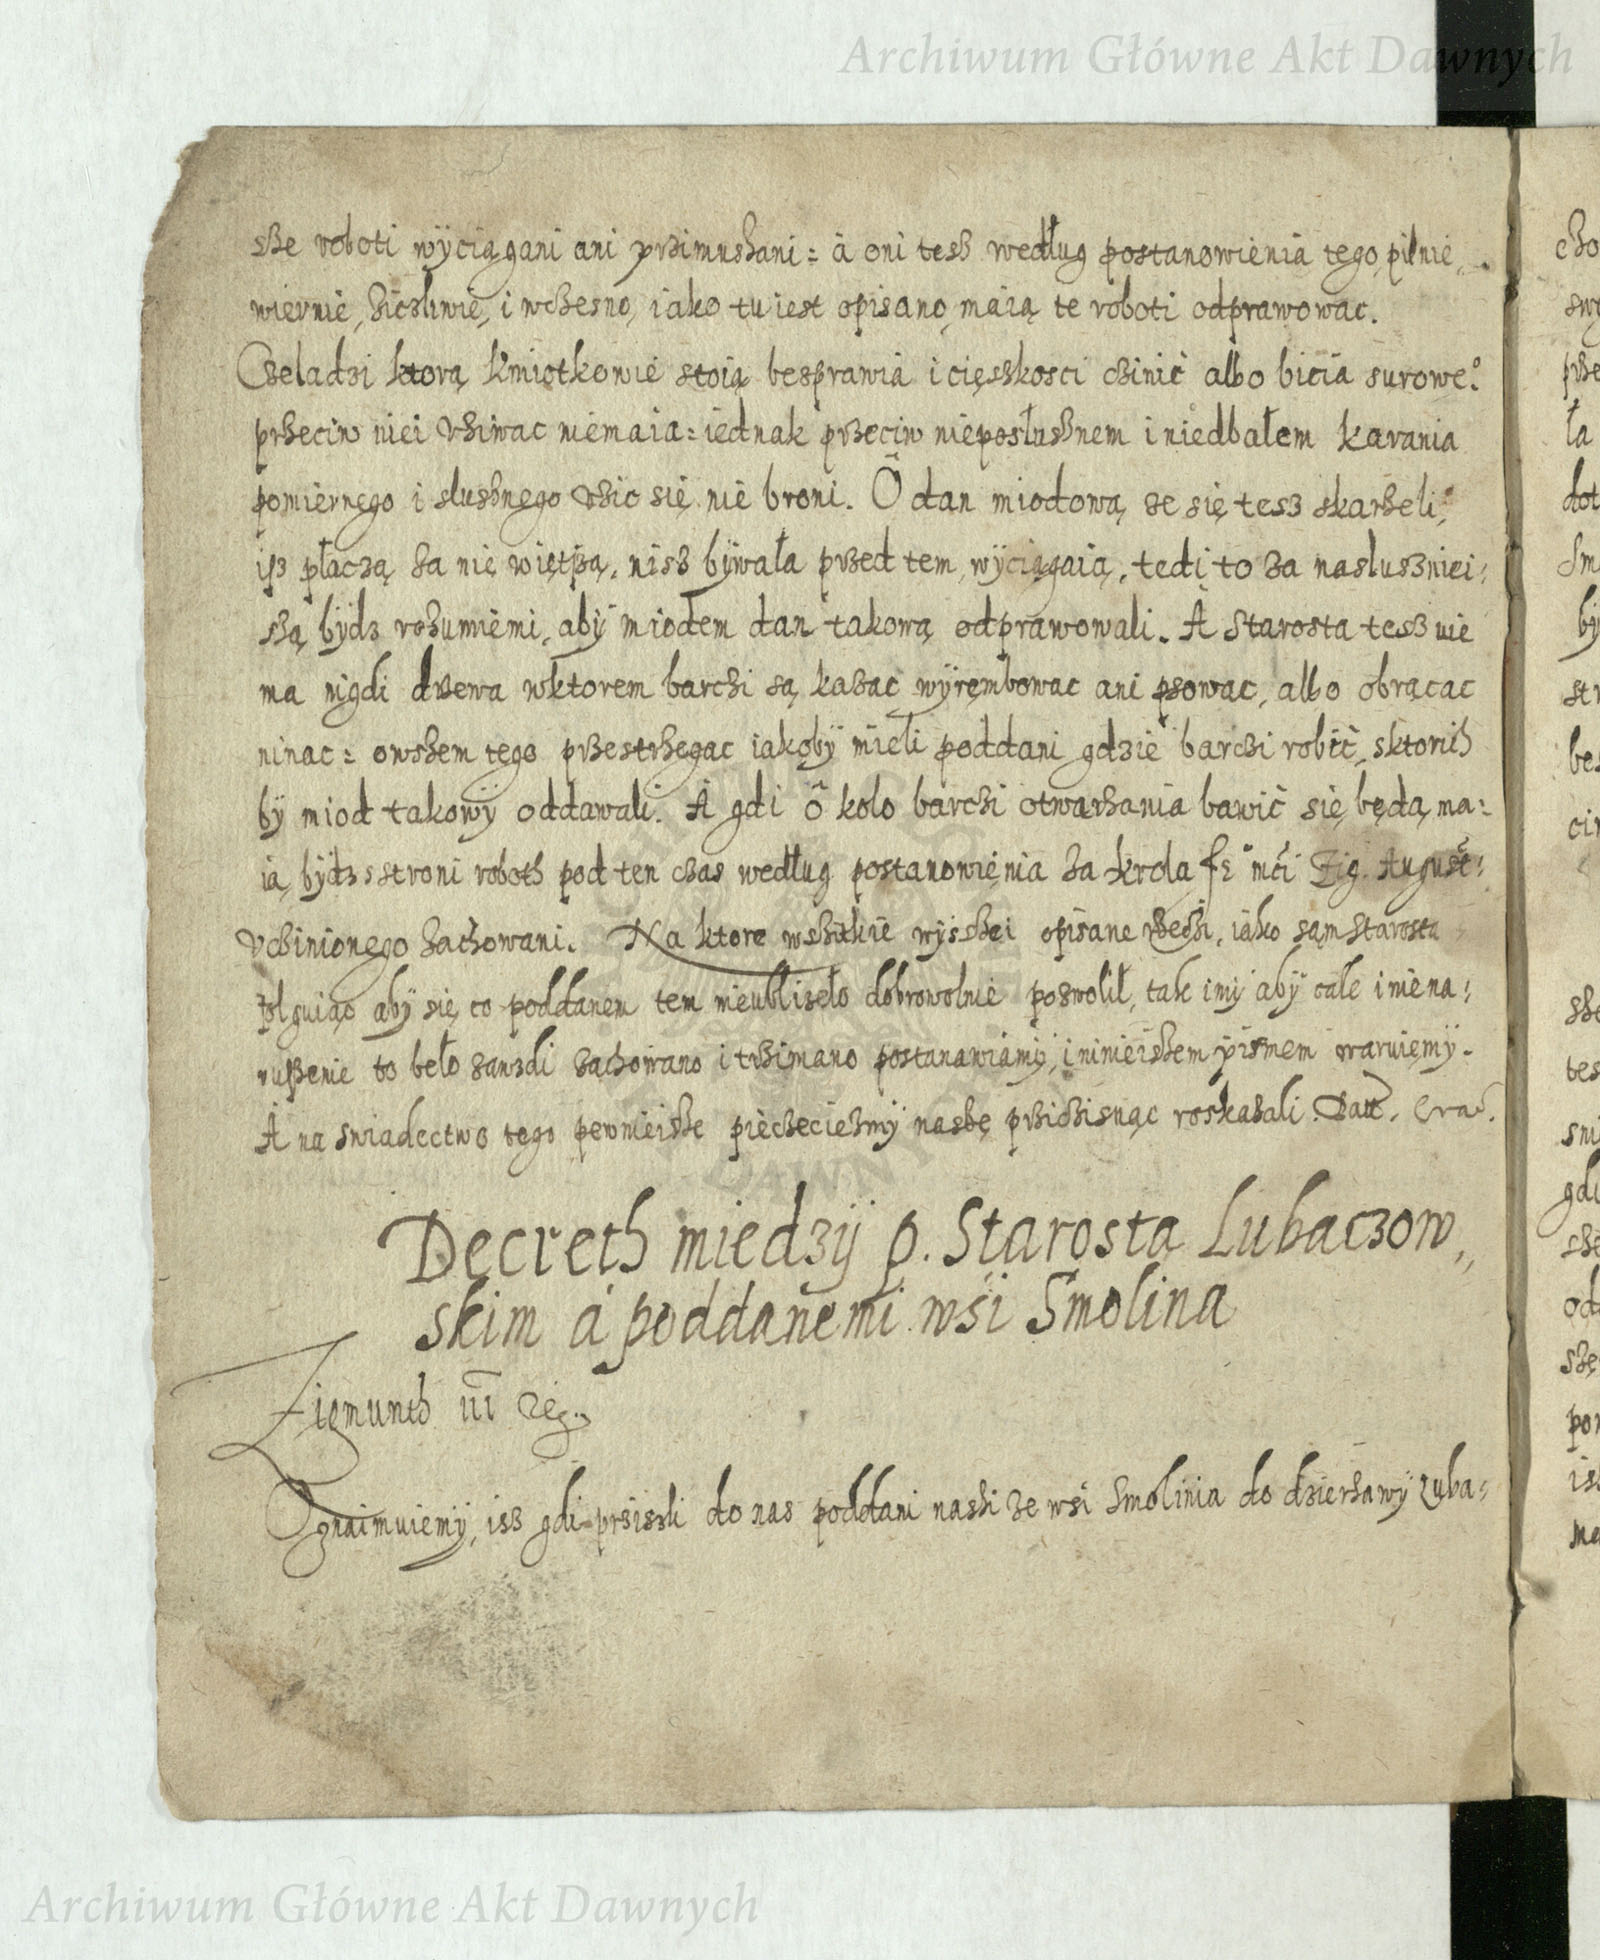 Archiwum Główne Akt Dawnych
sze roboti wÿciągani ani przimuszani = á oni tesz według postanowienia tego pilnie,
wiernie, ziczliwie, i wczesno, iako tu iest opisano, maią te roboti odprawowac.
Czeladzi ktorą kmiotkowie stoią besprawia i cięszkosci czinić albo bicia surowe°
przeciw niei vziwac niemaia = iednak przeciw nieposłusznem i niedbałem karania
pomiernego i slusznego vzic się nie broni. O dan miodową ze się tesz skarzeli,
isz płaczą za nię więtszą, nisz bÿwała przed tem, wÿciągaią, tedi to za nasluszniei:
szą bÿdz rozumiemi, abÿ miodem dan takową odprawowali. A Starosta tesz nie
ma nigdi drzewa wktorem barczi są kazać wÿrembowac ani psowac, albo obracac
ninac = owszem tego przestrzegac iakobÿ mieli poddani gdzie barczi robić, sktorich
bÿ miod takowÿ oddawali. A gdi o kolo barczi otwarzania bawić się będą, ma:
ią bÿdz s stroni roboth pod ten czas według postanowienia za krola Je° mći Zig. August:
vczinionego zachowani. Na ktore wszitkie wÿsszei opisane rzeczi, iako sąm starosta
folguiąc abÿ się co poddanem tem nieubliżeło dobrowolnie pozwolił, tak i mÿ abÿ cale i niena:
ruszenie to beło zawzdi zachowano i trzimano postanawiamÿ, i ninieiszem pismem waruiemÿ.
A na swiadectwo tego pewnieisze pieczeciezmÿ naszę przicisnąc roskazali. Datt. Crac.
Decreth miedzÿ p. Starostą Lubaczow,,
skim á poddanemi wsi Smolina
Zigmunth III Reg.
Oznaimuiemÿ, isz gdi prziszli do nas poddani naszi ze wsi Smolinia do dzierzawÿ Luba:
Archiwum Główne Akt Dawnych